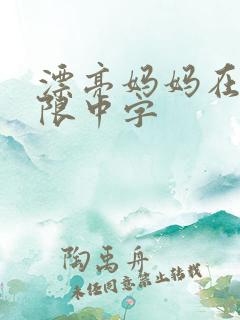 漂亮妈妈在
限中字
陶禹舟
未经同意禁止转载